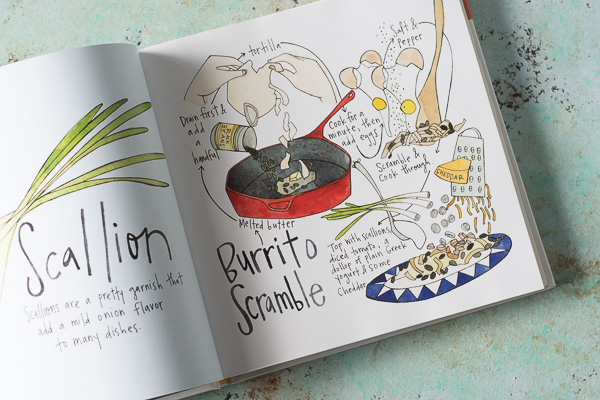 Scallion
Scallions are a pretty garnish that
add a mild onion flavor
to many dishes.
tortilla
Salt &
pepper
Drain first &
add
a
handful
Cook for a
minute, then
add eggs.
Scramble &
Cook through
CHEDDAR
Melted butter
Burrito
Scramble
Top with scallions,
diced tomato, a
dollop of plain Greek
yogurt & some
Cheddar